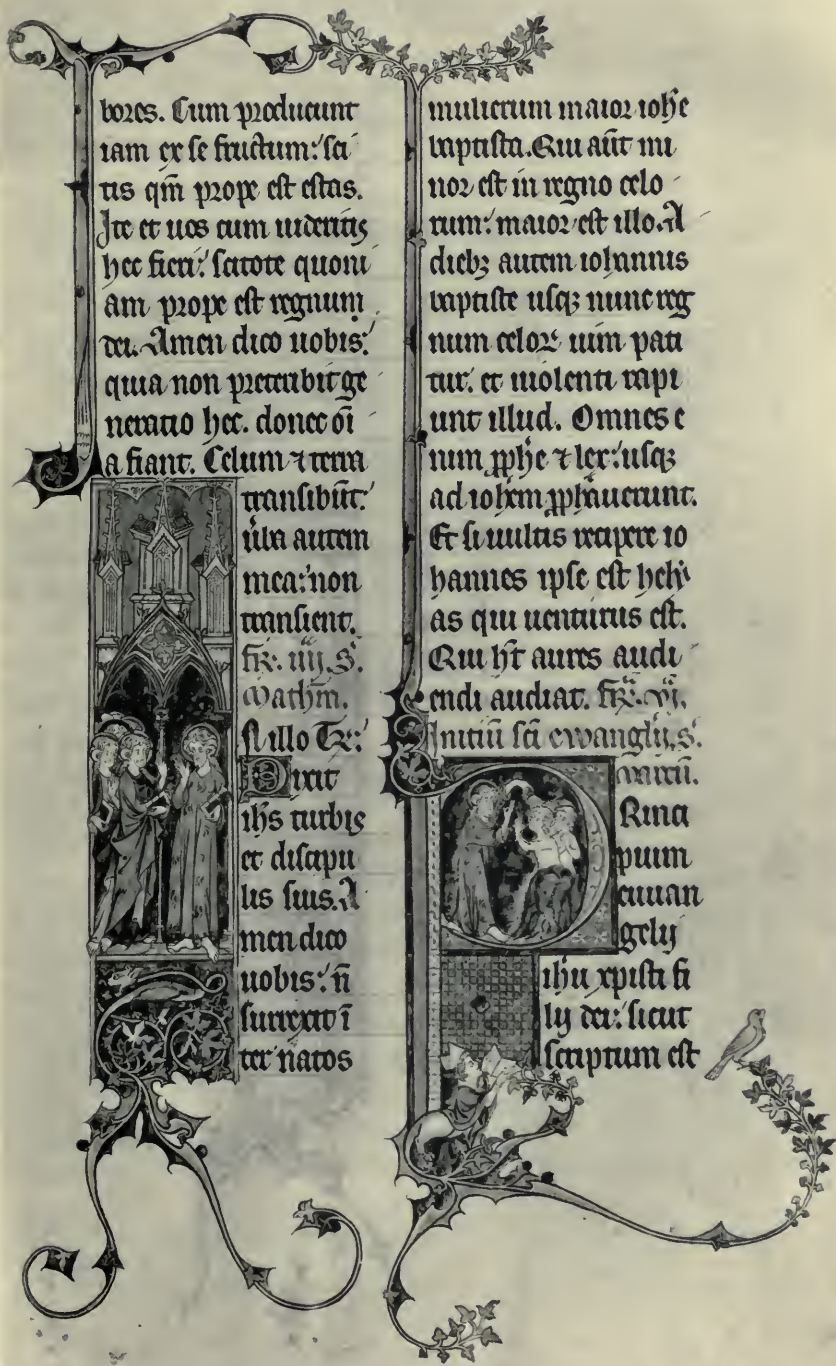 bores. Cum producunt
iam ex se fructum: sci
tis qm̄ prope est estas.
Ite et uos cum uideritis
hec fieri: scitote quoni
am prope est regnum
dei. Amen dico uobis:
quia non preteribit ge
neratio hec. donec oī
a fiant. Celum ⁊ terra
transibūt:
ūba autem
mea: non
transient.
fr̄. iiij. S.
Mathm̄.
N illo T̄r:
Dixit
ih̄s turbis
et discipu
lis suis. A
men dico
uobis: n̄
surrexit ī
ter natos
mulierum maior ioh̄e
baptista. Qui aūt mi
nor est in regno celo
rum: maior est illo. A
diebꝫ autem iohannis
baptiste usqꝫ nunc reg
num celoꝝ uim pati
tur. et uiolenti rapi
unt illud. Omnes e
nim ꝓph̄e ⁊ lex: usqꝫ
ad ioh̄em ꝓph̄auerunt.
Et si uultis recipere io
hannes ipse est hely
as qui uenturus est.
Qui h̄t aures audi
endi audiat. fr̄. vi.
Initiū sc̄i ewanglij. S.
marcū.
Rinci
pium
euuan
gelij
ih̄u xpisti fi
lij dei: sicut
scriptum est